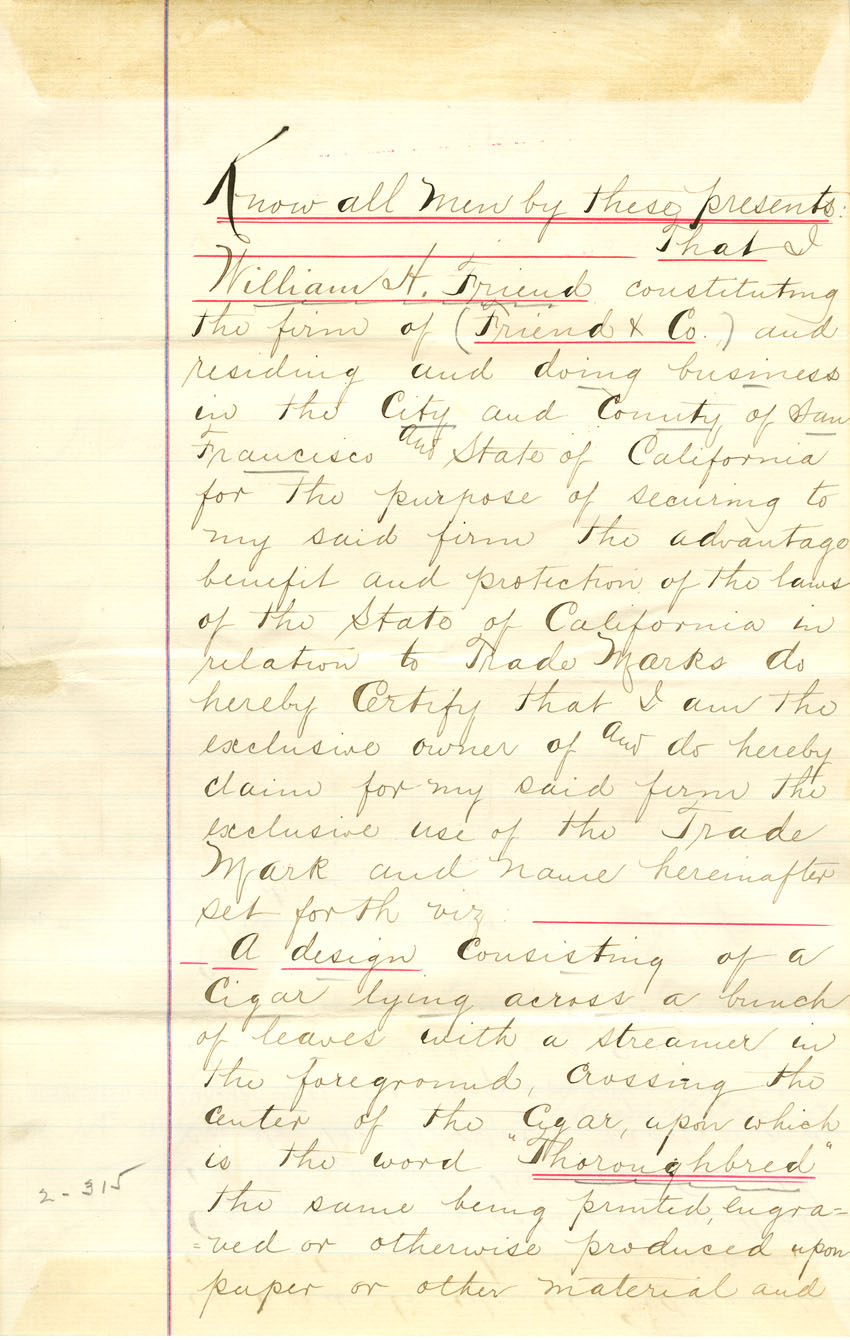 Know all Men by these presents:
That I
William H. Friend constituting
the firm of (Friend & Co.) and
residing and doing business
in the City and County of San
Francisco and State of California
for the purpose of securing to
my said firm the advantage
benefit and protection of the laws
of the State of California in
relation to Trade Marks do
hereby Certify that I am the
exclusive owner of and do hereby
claim for my said firm the
exclusive use of the Trade
Mark and name hereinafter
set forth viz:
A design Consisting of a
Cigar lying across a bunch
of leaves with a streamer in
the foreground, Crossing the
Center of the Cigar, upon which
is the word "Thoroughbred"
2-315
the same being printed, engra=
=ved or otherwise produced upon
paper or other material and